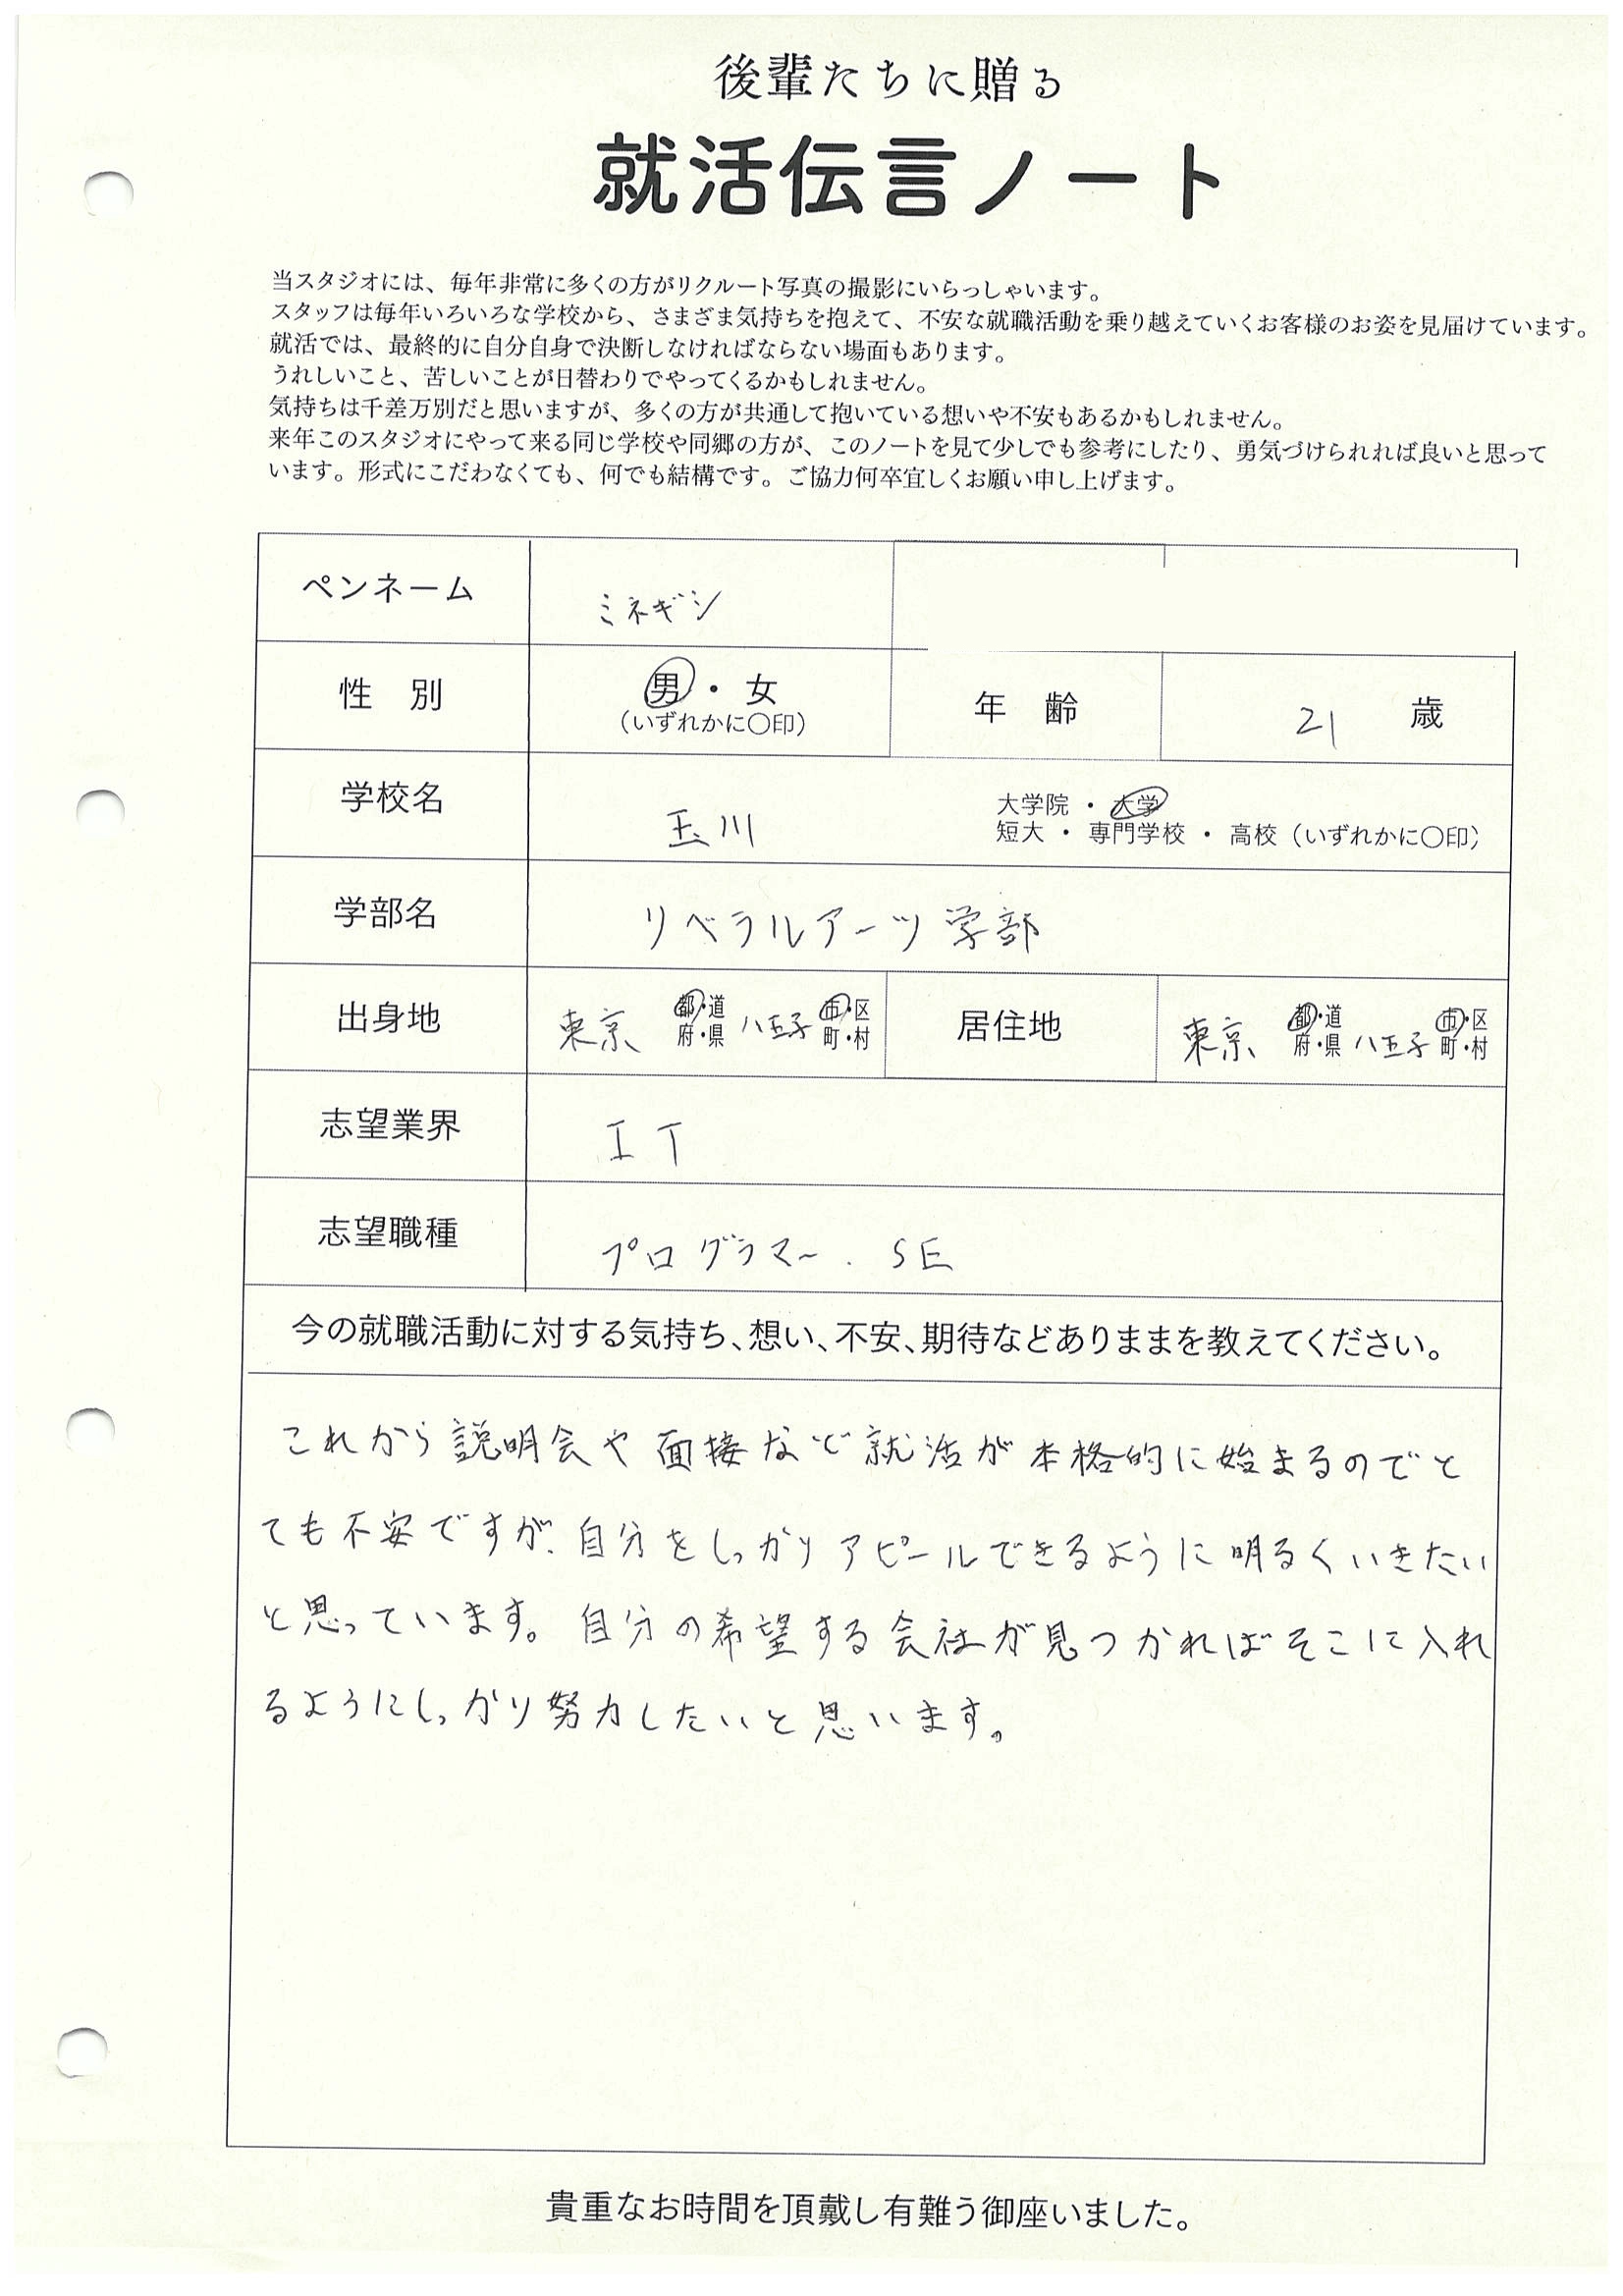 後輩たちに贈る
就活伝言ノート
当スタジオには、毎年非常に多くの方がリクルート写真の撮影にいらっしゃいます。
スタッフは毎年いろいろな学校から、さまざま気持ちを抱えて、不安な就職活動を乗り越えていくお客様のお姿を見届けています。
就活では、最終的に自分自身で決断しなければならない場面もあります。
うれしいこと、苦しいことが日替わりでやってくるかもしれません。
気持ちは千差万別だと思いますが、多くの方が共通して抱いている想いや不安もあるかもしれません。
来年このスタジオにやって来る同じ学校や同郷の方が、このノートを見て少しでも参考にしたり、勇気づけられれば良いと思って
います。形式にこだわなくても、何でも結構です。ご協力何卒宜しくお願い申し上げます。
ペンネーム ミネギシ
性 別 男・女 年 齢 21 歳
(いずれかに〇印)
学校名 玉川 大学院・大学
短大・専門学校・高校(いずれかに〇印)
学部名 リベラルアーツ学部
出身地 東京 都・道 八王子 市・区 居住地 東京 都・道 八王子 市・区
府・県 町・村 府・県 町・村
志望業界 IT
志望職種 プログラマー. SE
今の就職活動に対する気持ち、想い、不安、期待などありままを教えてください。
これから説明会や面接など就活が本格的に始まるのでと
ても不安ですが、自分をしっかりアピールできるように明るくいきたい
と思っています。自分の希望する会社が見つかればそこに入れ
るようにしっかり努力したいと思います。
貴重なお時間を頂戴し有難う御座いました。